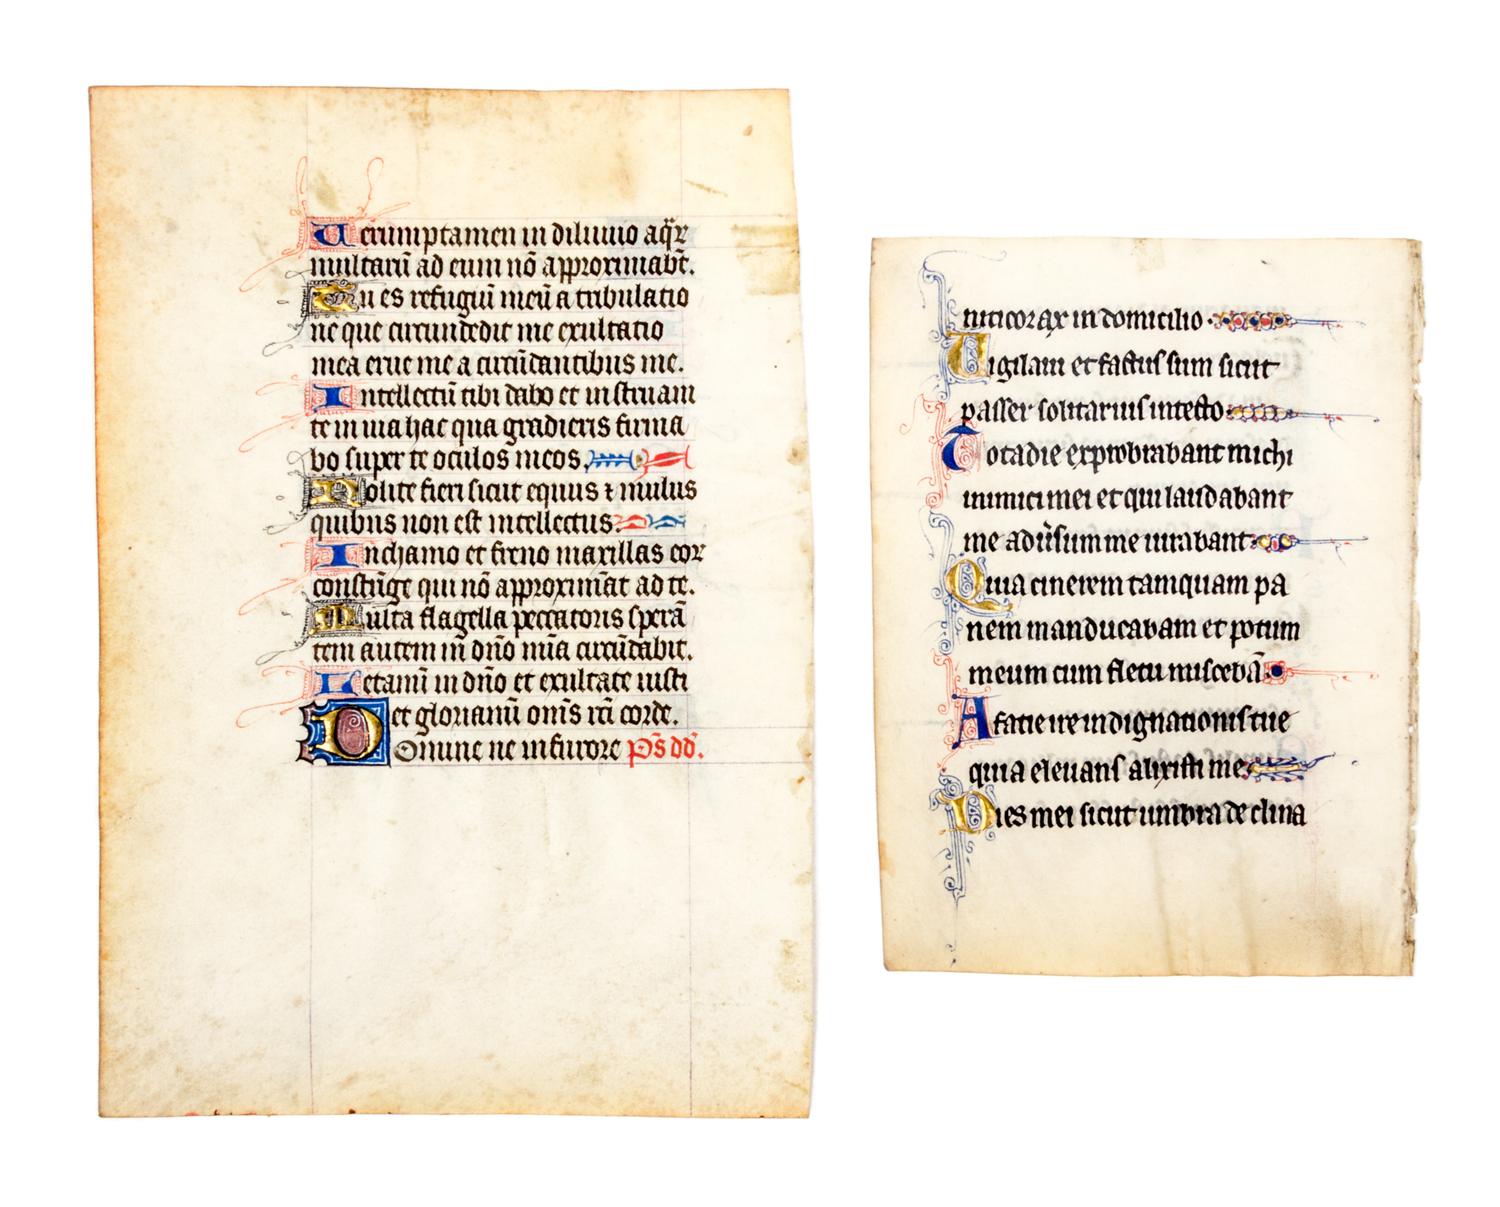 Uerumptamen in diluuio aqr̄
multarū ad eum nō approximabt̄.
Tu es refugiū meū a tribulatio
ne que circundedit me exultatio
mea erue me a circūdantibus me.
Intellectū tibi dabo et instruam
te in uia hac qua gradieris firma
bo super te oculos meos.
Nolite fieri sicut equus ⁊ mulus
quibus non est intellectus.
In chamo et freno maxillas eor
constrīge qui nō approximāt ad te.
Multa flagella peccatoris sperā
tem autem in dn̄o mīa circūdabit.
Letamī in dn̄o et exultate iusti
et gloriamī om̄s rc̄i corde.
Domine ne in furore ps̄ dd̄.
nuticorax in domicilio.
Uigilaui et factus sum sicut
passer solitarius in tecto
Tota die exprobrabant michi
inimici mei et qui laudabant
me adūsum me iurabant
Quia cinerem tamquam pa
nem manducabam et potum
meum cum fletu miscebā
A facie ire indignationis tue
quia eleuans alixisti me
Dies mei sicut umbra de clina